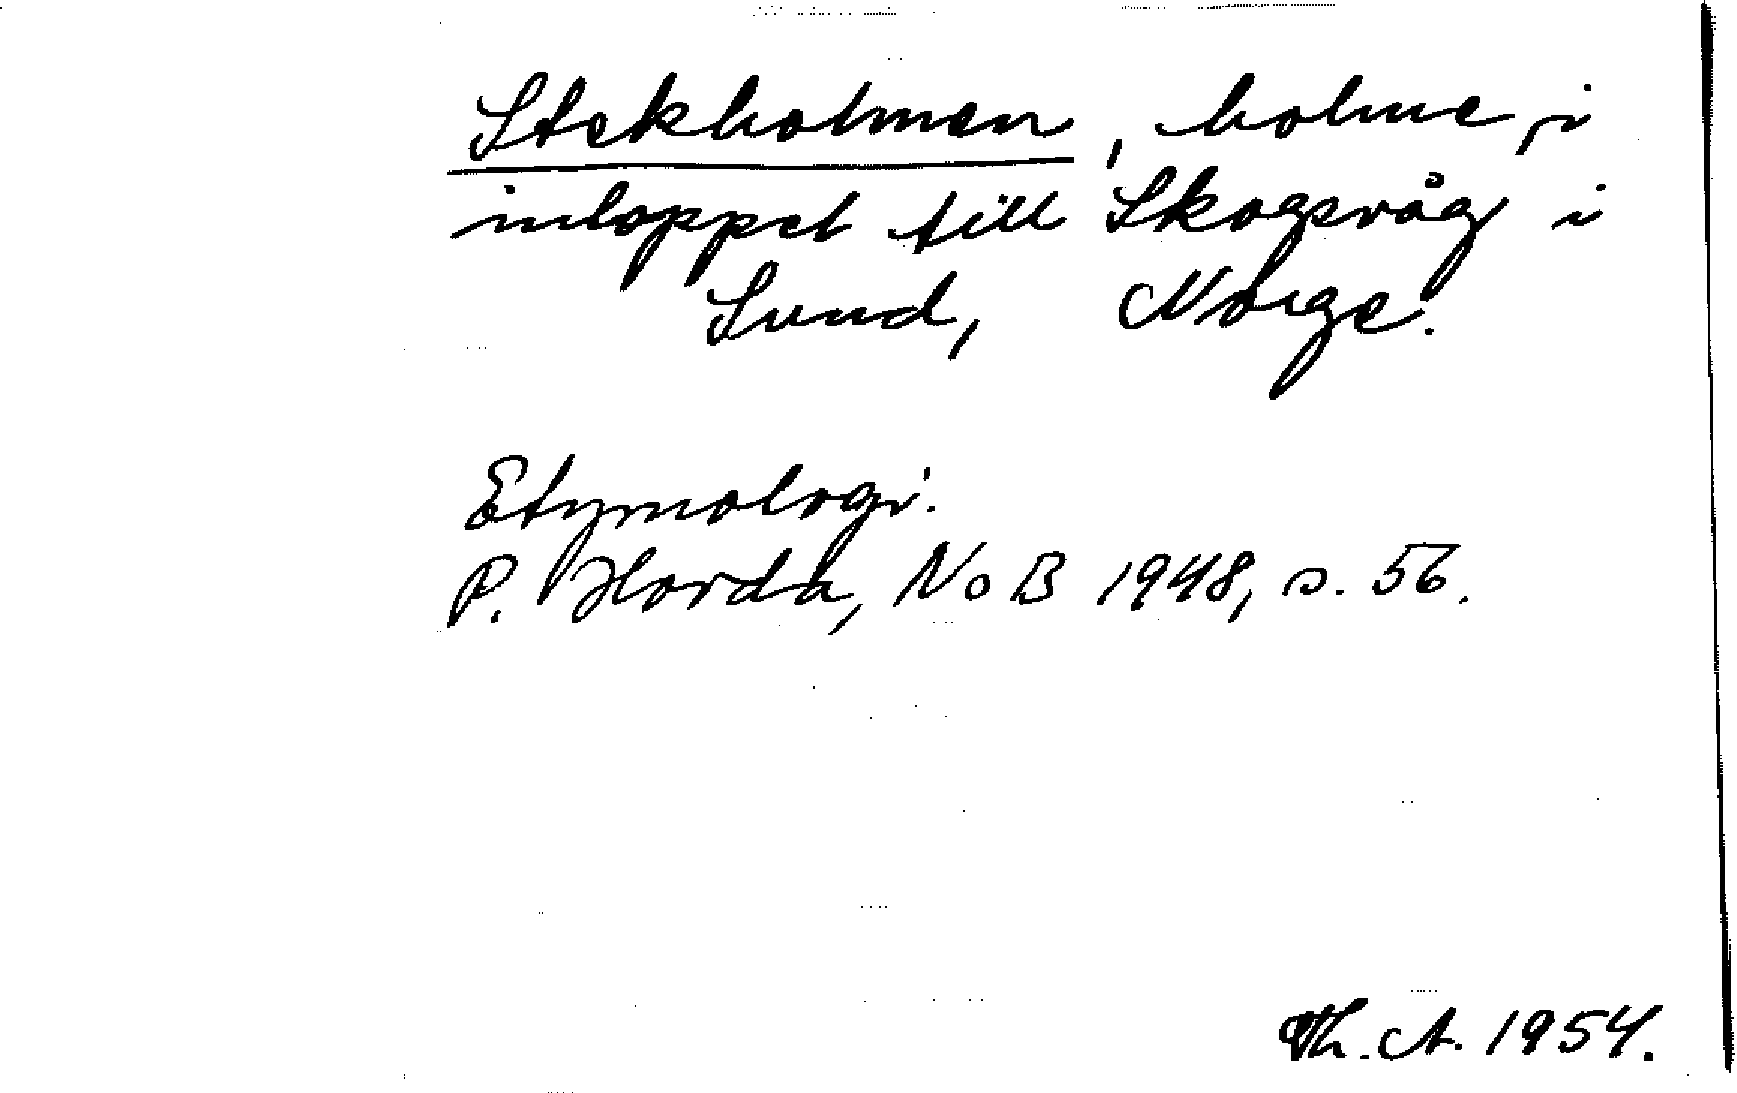 Stekholmen, holme, i
inloppet till Skogsvåg i
Sund, Norge.
Etymologi.
P. Horda, NoB 1948, s. 56.
Th. A. 1954.